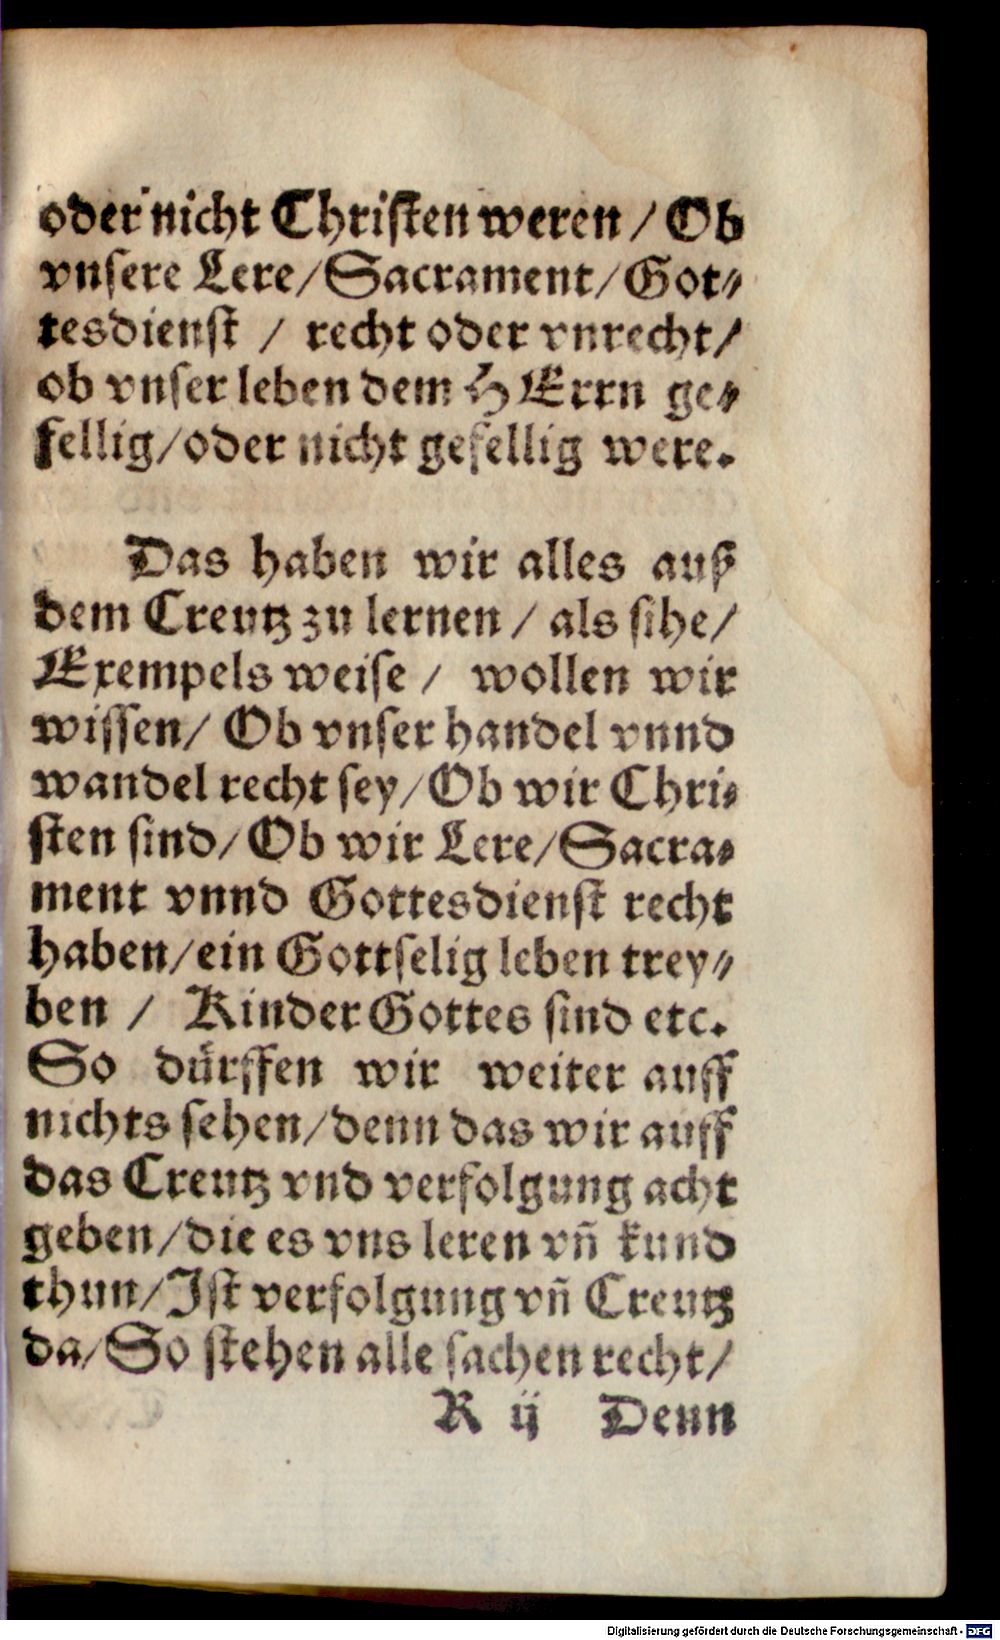 oder nicht Christen weren / Ob
vnsere Lere / Sacrament / Got⸗
tesdienst / recht oder vnrecht /
ob vnser leben dem HErrn ge⸗
fellig / oder nicht gefellig were.
Das haben wir alles auß
dem Creutz zu lernen / als sihe /
Exempels weise / wollen wir
wissen / Ob vnser handel vnnd
wandel recht sey / Ob wir Chri⸗
sten sind / Ob wir Lere / Sacra⸗
ment vnnd Gottesdienst recht
haben / ein Gottselig leben trey⸗
ben / Kinder Gottes sind etc.
So dürffen wir weiter auff
nichts sehen / denn das wir auff
das Creutz vnd verfolgung acht
geben / die es vns leren vn̄ kund
thun / Ist verfolgung vn̄ Creutz
da / So stehen alle sachen recht /
R ij Denn
Digitalisierung gefördert durch die Deutsche Forschungsgemeinschaft - DFG